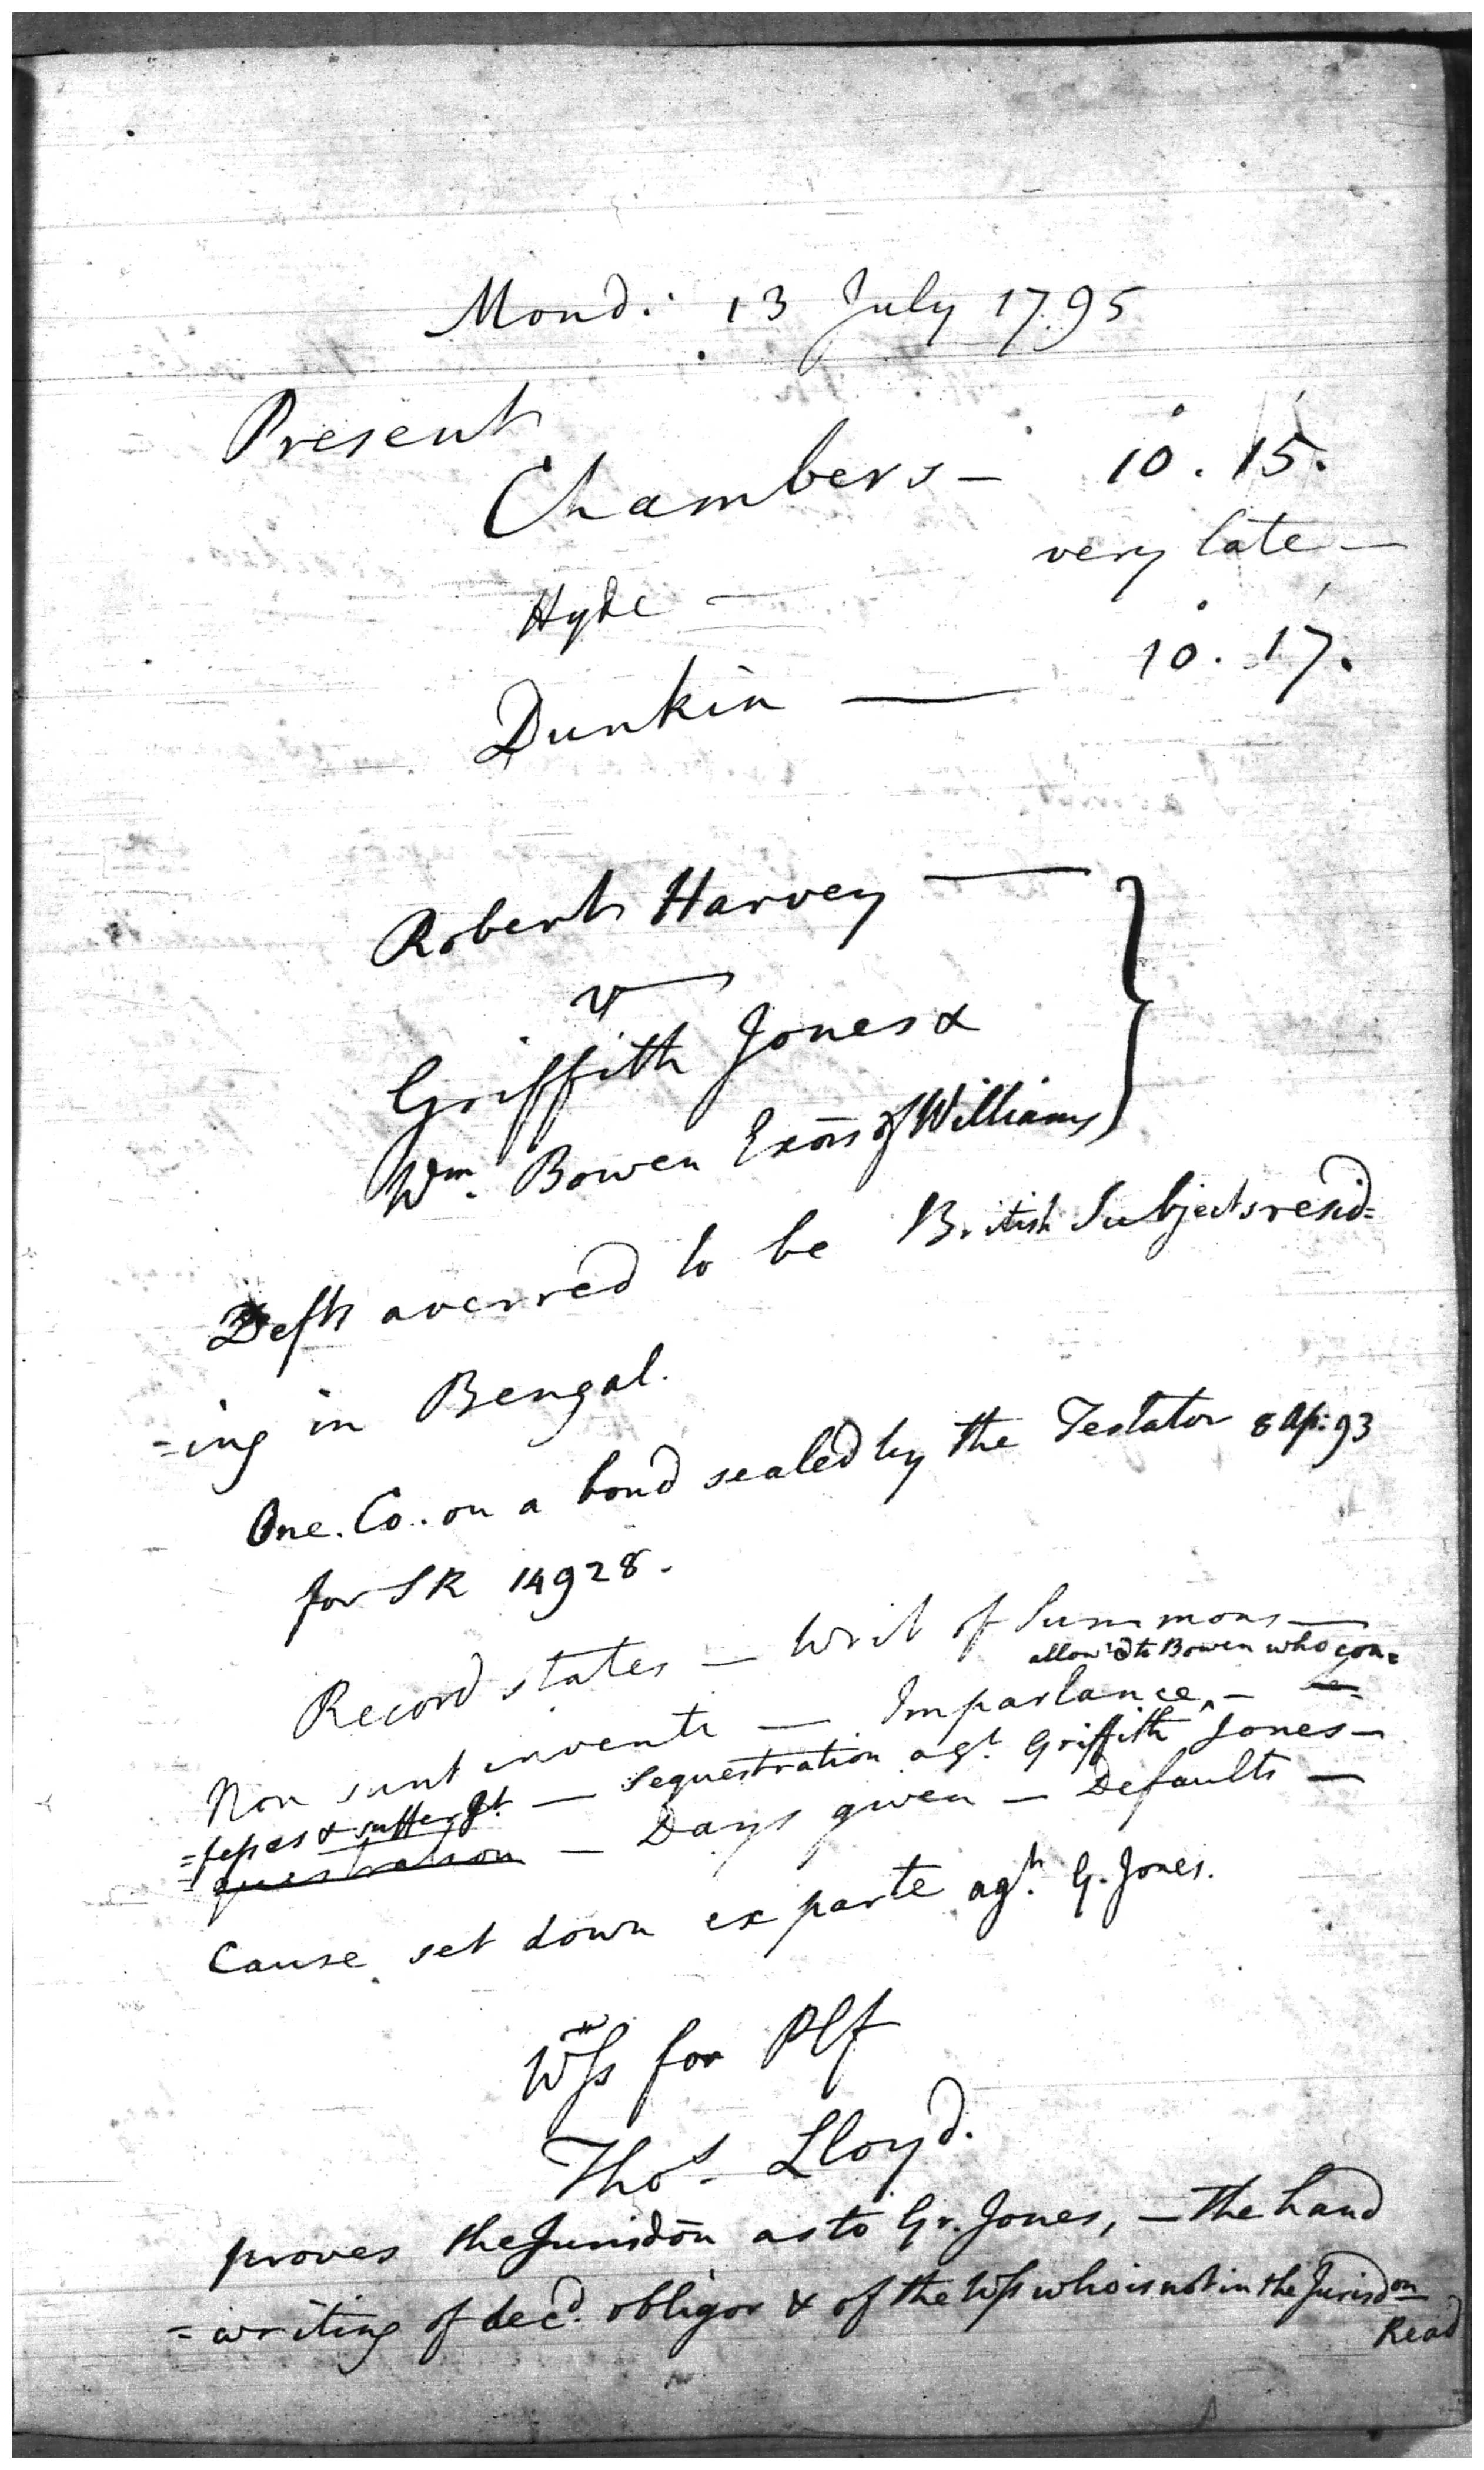 Mond: 13 July 1795
Present
Chambers — 10°. 15'.
very late —
Hyde —
Dunkin — 10°. 17'.
Robert Harvey —
v
Griffith Jones &
Wm. Bowen Exōrs of Williams
Defts averred to be British Subjects resid=
=ing in Bengal.
One. Co. on a bond sealed by the Testator 8 Ap: 93
for SR 14928.
Record states — Writ of Summons —
allow'd to Bowen who con=
Non sunt inventi — Imparlance ‸ —
=fesses & suffers Jt — Sequestration agt. Griffith Jones —
=questration — Days given — Defaults —
Cause set down ex parte agt. G. Jones.
Wss for Plf
Thos. Lloyd.
proves the Jurisdōn as to Gr. Jones, — the hand
=writing of decd. obligor & of the Wss who is not in the Jurisdon —
Read